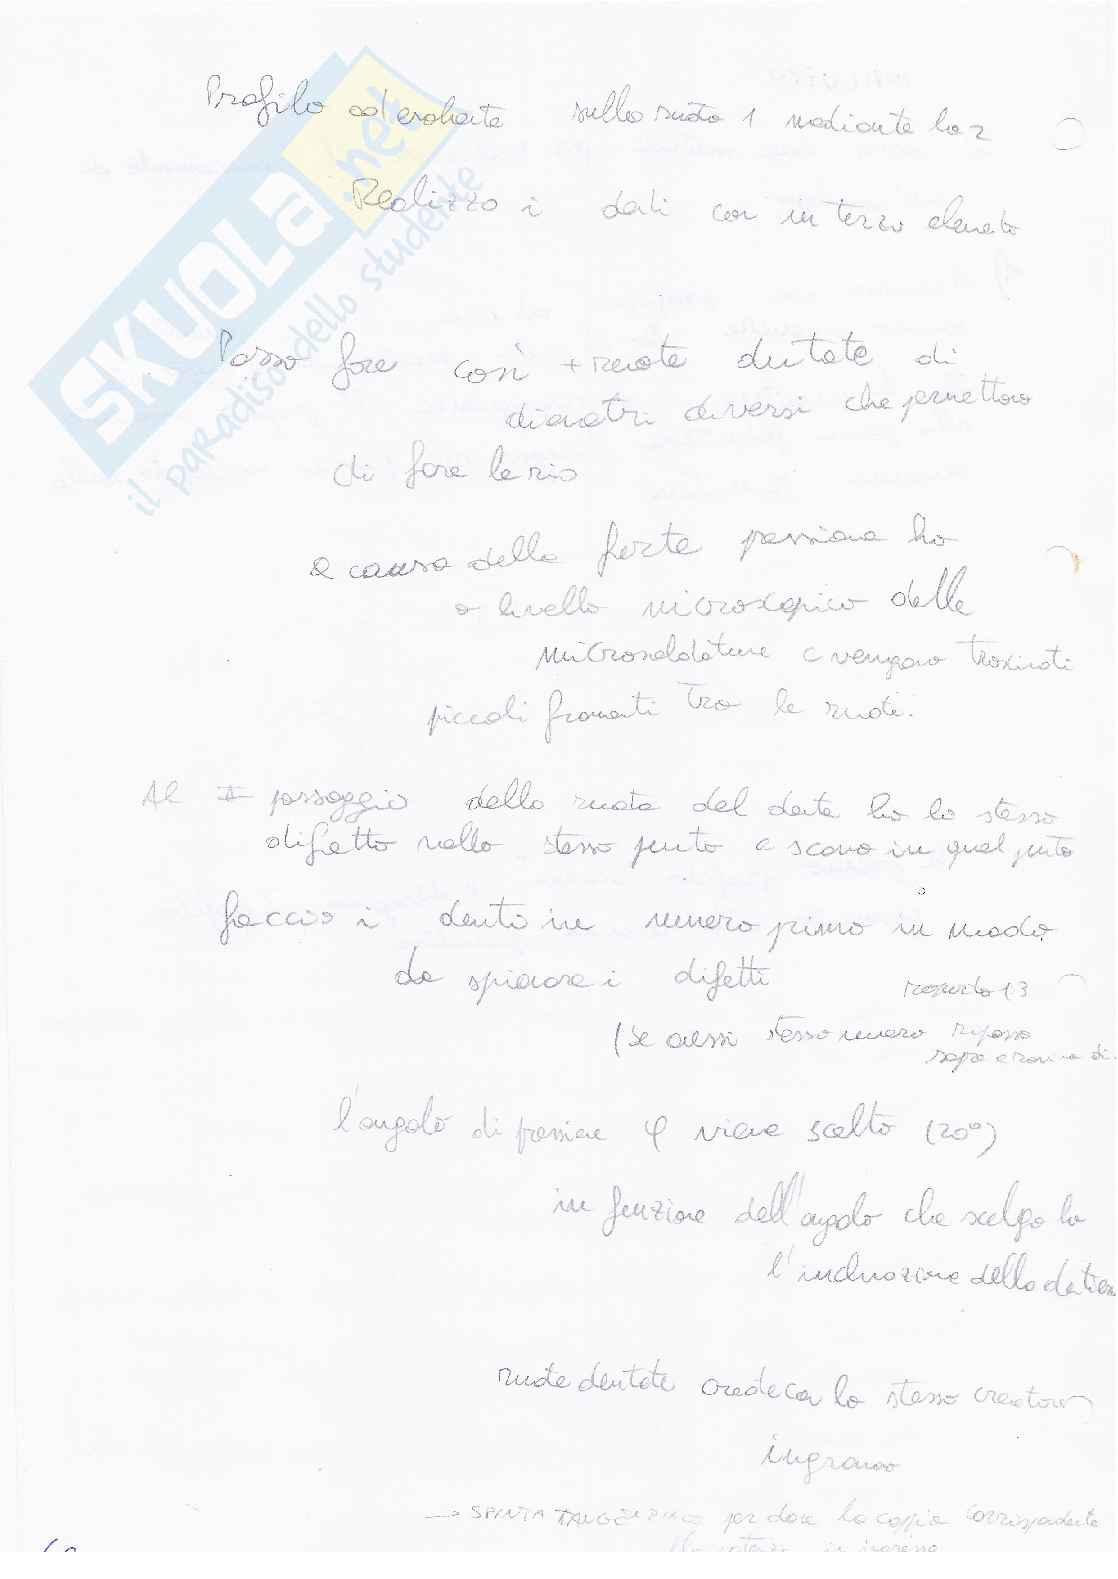 SKUOLA.net
il paradiso dello studente
Profilo ad evolvente sulla ruota 1 mediante la 2
Realizzo i denti con un terzo elemento
Posso fare così + ruote dentate di
diametri diversi che permettono
di fare la
a causa della forte pressione ho
a livello microscopico delle
microsaldature e vengono trascinati
piccoli frammenti tra le ruote.
Al passaggio della ruota del dente ho lo stesso
difetto nello stesso punto e scavo in quel punto
faccio i denti in numero primo in modo
da spianare i difetti
13
(se avessi stesso numero ripasso
sopra e
l'angolo di pressione φ viene scelto (20°)
in funzione dell'angolo che scelgo ho
l'inclinazione della
ruote dentate create con lo stesso creatore
ingranano
→ SPINTA per dare la coppia corrispondente
potenza in ingresso